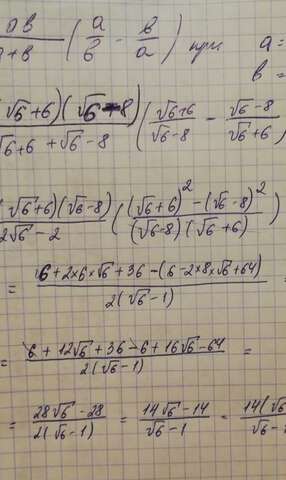 ab / a+b ( a/b - b/a ) при a =
b =
(√6+6)(√6-8) / √6+6 +√6-8 ( √6+6 / √6-8 - √6-8 / √6+6 )
(√6+6)(√6-8) / 2√6-2 ( (√6+6)² -(√6-8)² / (√6-8)(√6+6) )
= 6+2×6×√6+36-(6-2×8×√6+64) / 2(√6-1) =
= 6+12√6+36-6+16√6-64 / 2(√6-1) =
= 28√6-28 / 2(√6-1) = 14√6-14 / √6-1 = 14(√6 / √6-